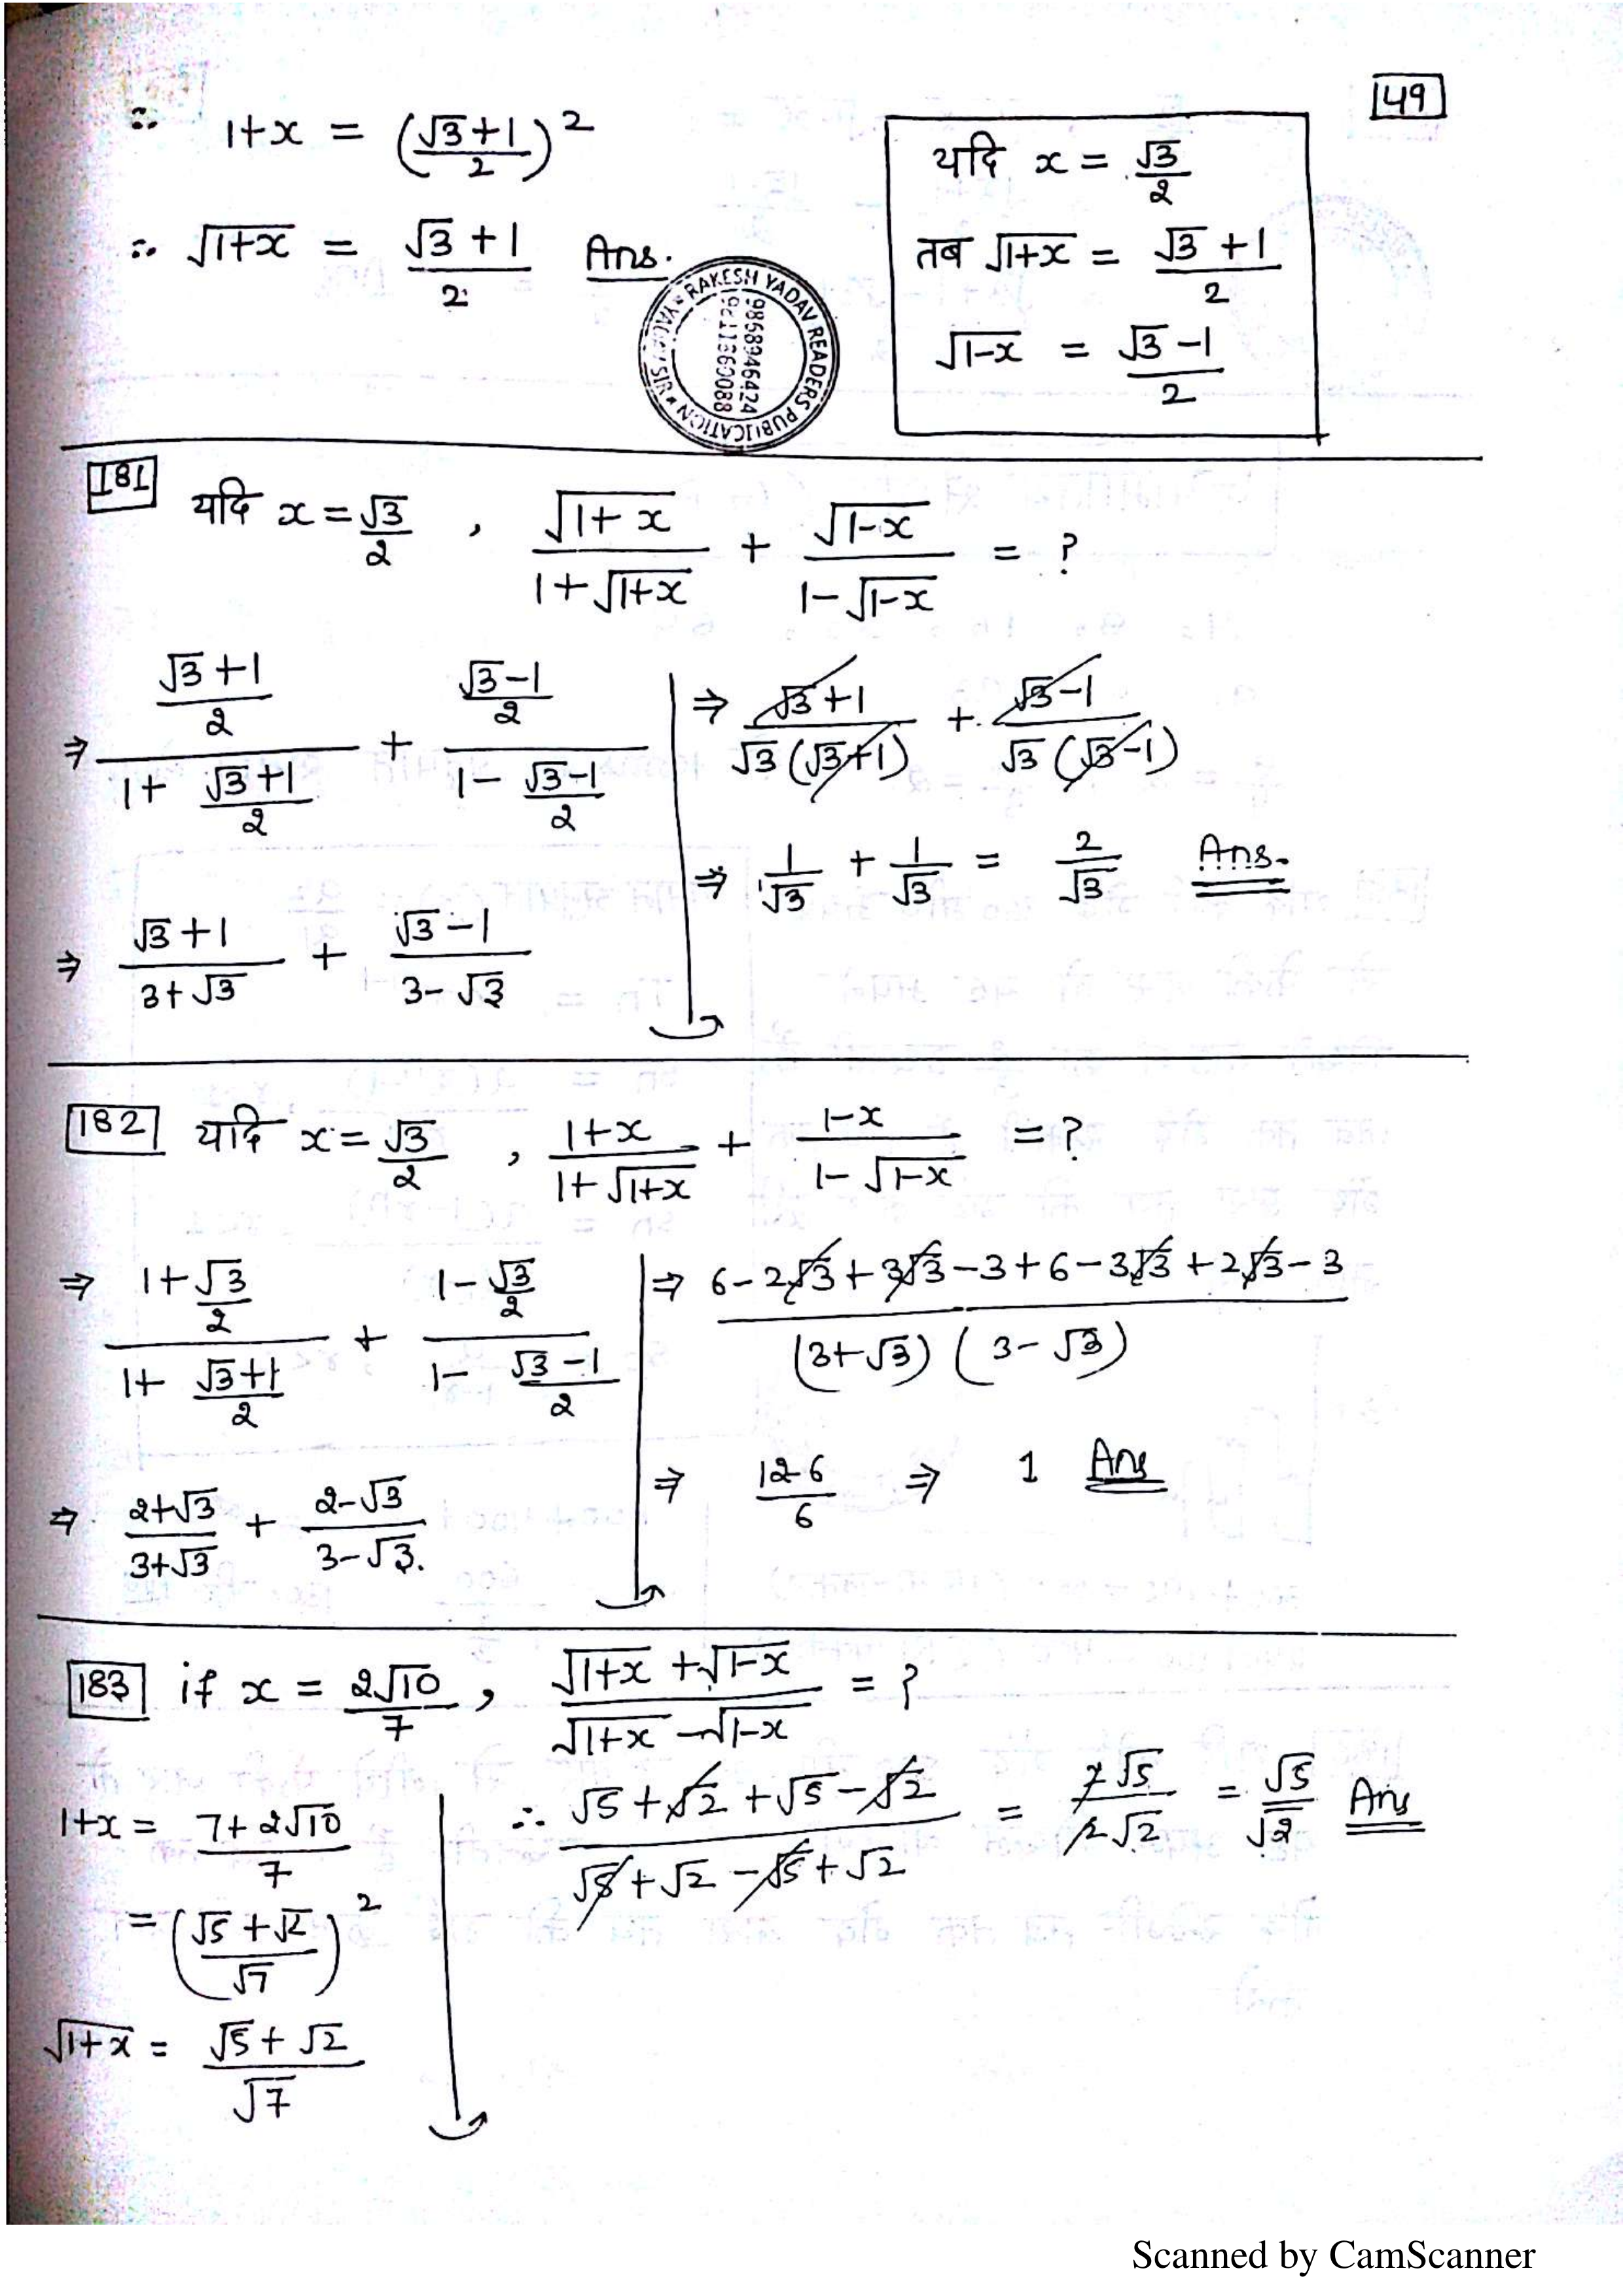 49
∴ 1+x = ((√3+1)/2)²
∴ √(1+x) = (√3+1)/2 Ans.
यदि x = √3/2
तब √(1+x) = (√3+1)/2
√(1-x) = (√3-1)/2
RAKESH YADAV READERS PUBLICATION
9868946424
181 यदि x = √3/2 , √(1+x)/(1+√(1+x)) + √(1-x)/(1-√(1-x)) = ?
⇒ ((√3+1)/2)/(1+(√3+1)/2) + ((√3-1)/2)/(1-(√3-1)/2)
⇒ (√3+1)/(3+√3) + (√3-1)/(3-√3)
⇒ (√3+1)/(√3(√3+1)) + (√3-1)/(√3(√3-1))
⇒ 1/√3 + 1/√3 = 2/√3 Ans.
182 यदि x = √3/2 , (1+x)/(1+√(1+x)) + (1-x)/(1-√(1-x)) = ?
⇒ (1+√3/2)/(1+(√3+1)/2) + (1-√3/2)/(1-(√3-1)/2)
⇒ (2+√3)/(3+√3) + (2-√3)/(3-√3).
⇒ (6-2√3+3√3-3+6-3√3+2√3-3)/((3+√3)(3-√3))
⇒ (12-6)/6 ⇒ 1 Ans
183 if x = 2√10/7 , (√(1+x)+√(1-x))/(√(1+x)-√(1-x)) = ?
1+x = (7+2√10)/7
= ((√5+√2)/√7)²
√(1+x) = (√5+√2)/√7
∴ (√5+√2+√5-√2)/(√5+√2-√5+√2) = 2√5/2√2 = √5/√2 Ans
Scanned by CamScanner